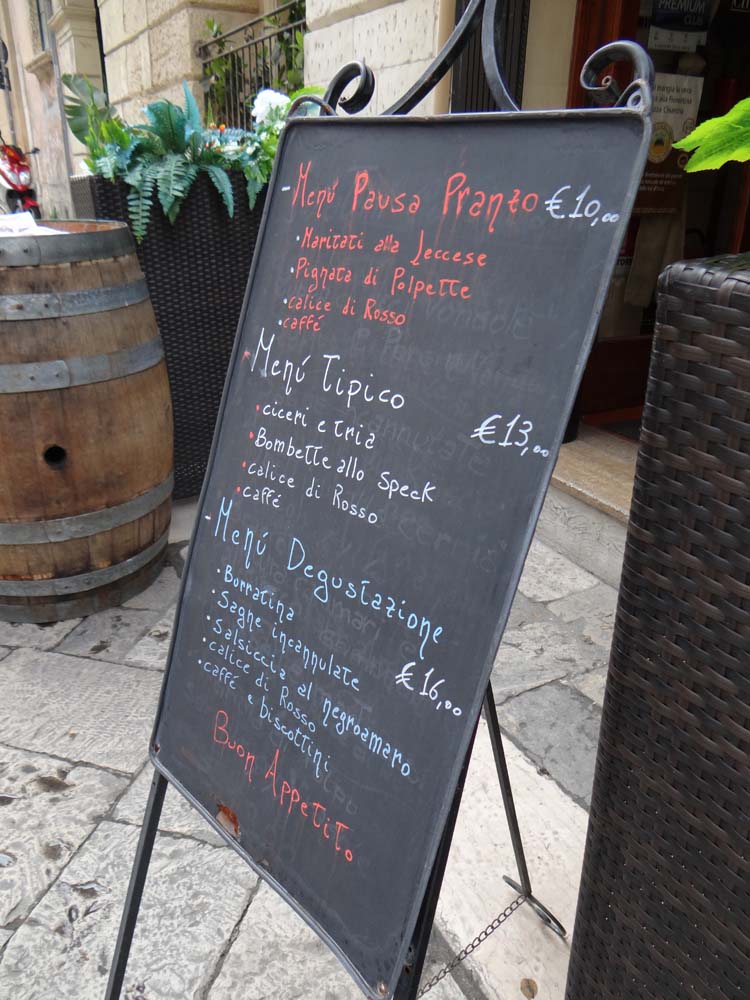 PREMIUM
CLUB
- Menú Pausa Pranzo €10,00
• Maritati alla Leccese
• Pignata di Polpette
• calice di Rosso
• caffé
• Menú Tipico
€13,00
• ciceri e tria
• Bombette allo Speck
• calice di Rosso
• caffé
- Menú Degustazione
€16,00
• Borratina
• Sagne incannulate
• Salsiccia al negroamaro
• calice di Rosso
• caffé e biscottini
Buon Appetito